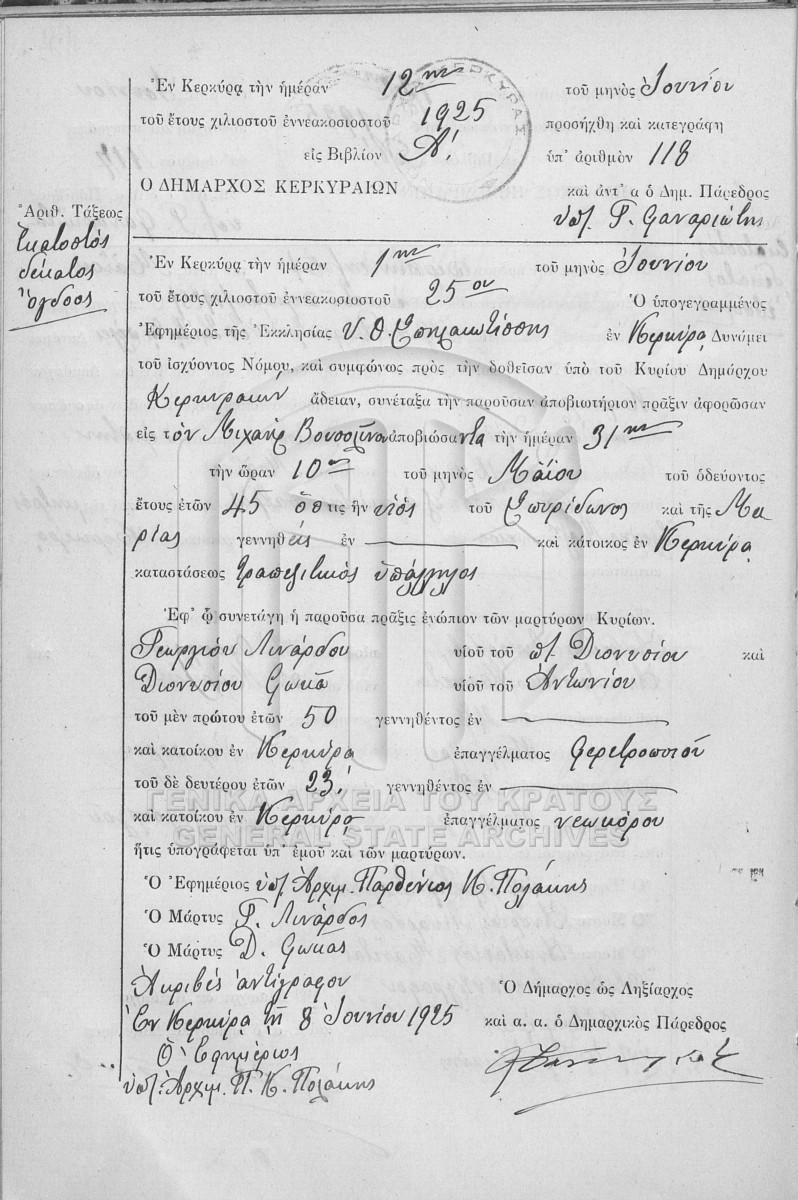 Ἐν Κερκύρᾳ τὴν ἡμέραν 12ην τοῦ μηνὸς Ἰουνίου
τοῦ ἔτους χιλιοστοῦ ἐννεακοσιοστοῦ 1925 προσήχθη καὶ κατεγράφη
εἰς Βιβλίον Α' ὑπ' ἀριθμὸν 118
Ο ΔΗΜΑΡΧΟΣ ΚΕΡΚΥΡΑΙΩΝ καὶ ἀντ' α ὁ Δημ. Πάρεδρος
ὑπ.
Ἀριθ. Τάξεως
Ἑκατοστὸς
δέκατος
ὄγδοος
Ἐν Κερκύρᾳ τὴν ἡμέραν 1ην τοῦ μηνὸς Ἰουνίου
τοῦ ἔτους χιλιοστοῦ ἐννεακοσιοστοῦ 25ου Ὁ ὑπογεγραμμένος
Ἐφημέριος τῆς Ἐκκλησίας Υ. Θ. Σπηλαιωτίσσης ἐν Κερκύρᾳ Δυνάμει
τοῦ ἰσχύοντος Νόμου, καὶ συμφώνως πρὸς τὴν δοθεῖσαν ὑπὸ τοῦ Κυρίου Δημάρχου
Κερκυραίων ἄδειαν, συνέταξα τὴν παροῦσαν ἀποβιωτήριον πρᾶξιν ἀφορῶσαν
εἰς τὸν Μιχαὴλ ἀποβιώσαντα τὴν ἡμέραν 31ην
τὴν ὥραν 10ην τοῦ μηνὸς Μαΐου τοῦ ὁδεύοντος
ἔτους ἐτῶν 45 ὅστις ἦν υἱὸς τοῦ Σπυρίδωνος καὶ τῆς Μα
ρίας γεννηθεὶς ἐν καὶ κάτοικος ἐν Κερκύρᾳ
καταστάσεως τραπεζιτικὸς ὑπάλληλος
Ἐφ' ᾧ συνετάγη ἡ παροῦσα πρᾶξις ἐνώπιον τῶν μαρτύρων Κυρίων.
Γεωργίου Λινάρδου υἱοῦ τοῦ Διονυσίου καὶ
Διονυσίου Σωκᾶ υἱοῦ τοῦ Ἀντωνίου
τοῦ μὲν πρώτου ἐτῶν 50 γεννηθέντος ἐν
καὶ κατοίκου ἐν Κερκύρᾳ ἐπαγγέλματος φερετροποιοῦ
τοῦ δὲ δευτέρου ἐτῶν 23 γεννηθέντος ἐν
καὶ κατοίκου ἐν Κερκύρᾳ ἐπαγγέλματος νεωκόρου
ΓΕΝΙΚΑ ΑΡΧΕΙΑ ΤΟΥ ΚΡΑΤΟΥΣ
GENERAL STATE ARCHIVES
ἥτις ὑπογράφεται ὑπ' ἐμοῦ καὶ τῶν μαρτύρων.
Ὁ Ἐφημέριος ὑπ. Ἀρχιμ. Παρθένιος Κ. Πολάκης
Ὁ Μάρτυς Γ. Λινάρδος
Ὁ Μάρτυς Δ. Σωκᾶς
Ἀκριβὲς ἀντίγραφον
Ἐν Κερκύρᾳ τῇ 8 Ἰουνίου 1925
Ὁ Ἐφημέριος
ὑπ. Ἀρχιμ. Π. Κ. Πολάκης
Ὁ Δήμαρχος ὡς Ληξίαρχος
καὶ α. α. ὁ Δημαρχικὸς Πάρεδρος